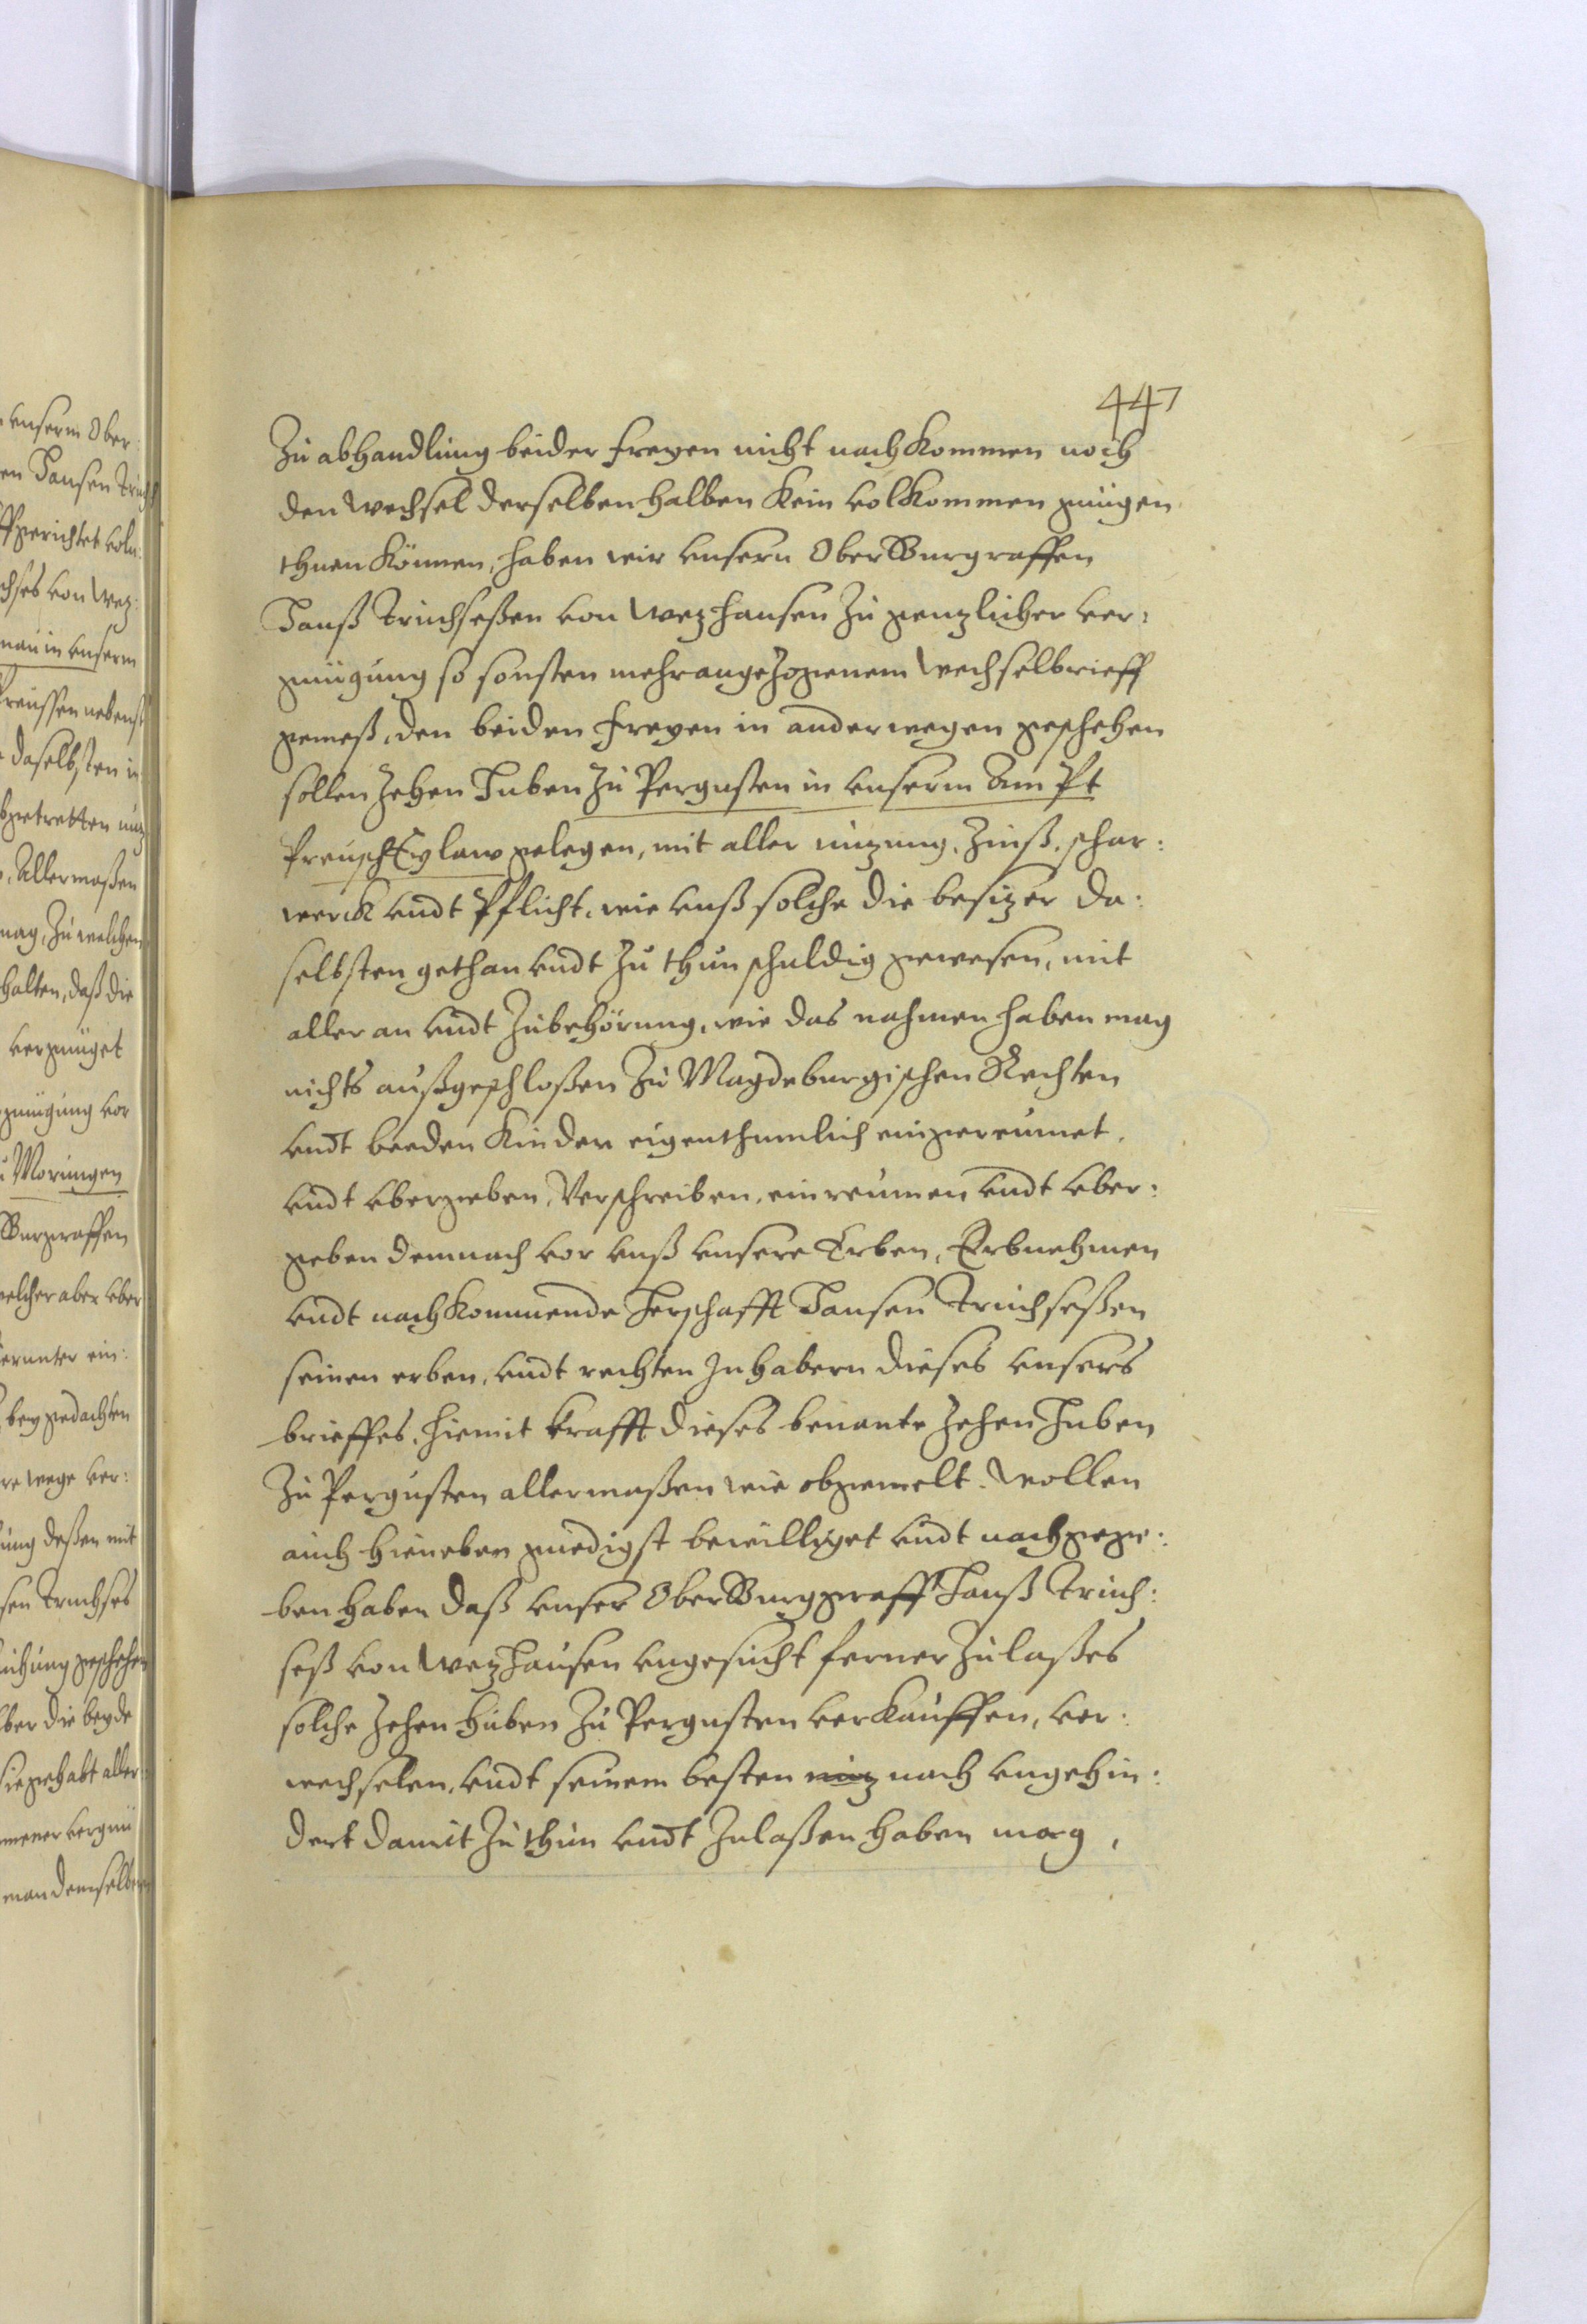 447
Zu abhandlung beider freyen nicht nachkommen noch
den Wechsel derselben halben kein volkommen gnügen
thuen können, haben wir vnsern OberBurggraffen
Hanß Truchseßen von Wezhausen zu genzlicher ver:
gnügung so sonsten mehrangezogenem Wechselbrieff
gemeß, den beiden freyen in anderwegen geschehen
sollen zehen Huben zu Pergusten in vnserm Ampt
PreuschEylaw gelegen, mit aller nuzung, Zinß, schar:
werck vndt Pflicht, wie vnß solche die besizer da:
selbsten gethan vndt zu thun schuldig gewesen, mit
aller an vndt Zubehörung, wie das nahmen haben mag
nichts außgeschloßen zu Magdeburgischen Rechten
vndt beeden Kinder eigenthumlich eingereumet,
vndt vbergeben, Verschreiben, einreumen vndt vber:
geben demnach vor vnß vnsere Erben, Erbnehmen
vndt nachkommende Herschafft Hansen Truchseßen
seinen erben, vndt rechten Inhabern dieses vnsers
brieffes, hiemit krafft dieses benante zehen Huben
zu Pergusten allermaßen wie obgemelt. Wollen
auch hieneben gnedigst bewilliget vndt nachgege:
ben haben daß vnser OberBurggraff Hanß Truch:
seß von Wezhausen vngesucht ferner zulaßes
solche zehen Huben zu Pergusten verkauffen, ver:
wechselen, vndt seinem besten nuz nach vngehin:
dert damit zu thun vndt zulaßen haben mag,
vnserm Ober:
en Hansen Truch
gerichtet
chses von Wez:
nau in vnserm
Preussen nebenst
daselbsten in
abgetretten nuz
Allermaßen
mag, zu welchen
halten, daß die
vergnüget
gnügung vor
zu Moringen
Burggraffen
welcher aber vber
herunter ein:
bey gedachten
wege ver:
ung deßen mit
sen Truchses
geschehen
vber die beyde
sie gehabt aller
vergnü
man demselben